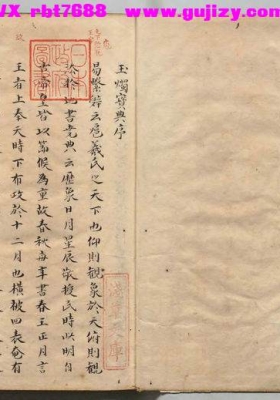 VX-rbt7688 www.gujizy.com
玉燭寶典序
易繫辭云庖羲氏之天下也仰則觀象於天俯則觀
法於地書堯典云曆象日月星辰敬授民時此明自
古帝皇皆以節候為重故春秋每年書春王正月言
王者上奉天時下布政於十二月也橫被四表奄有
日本政府圖書